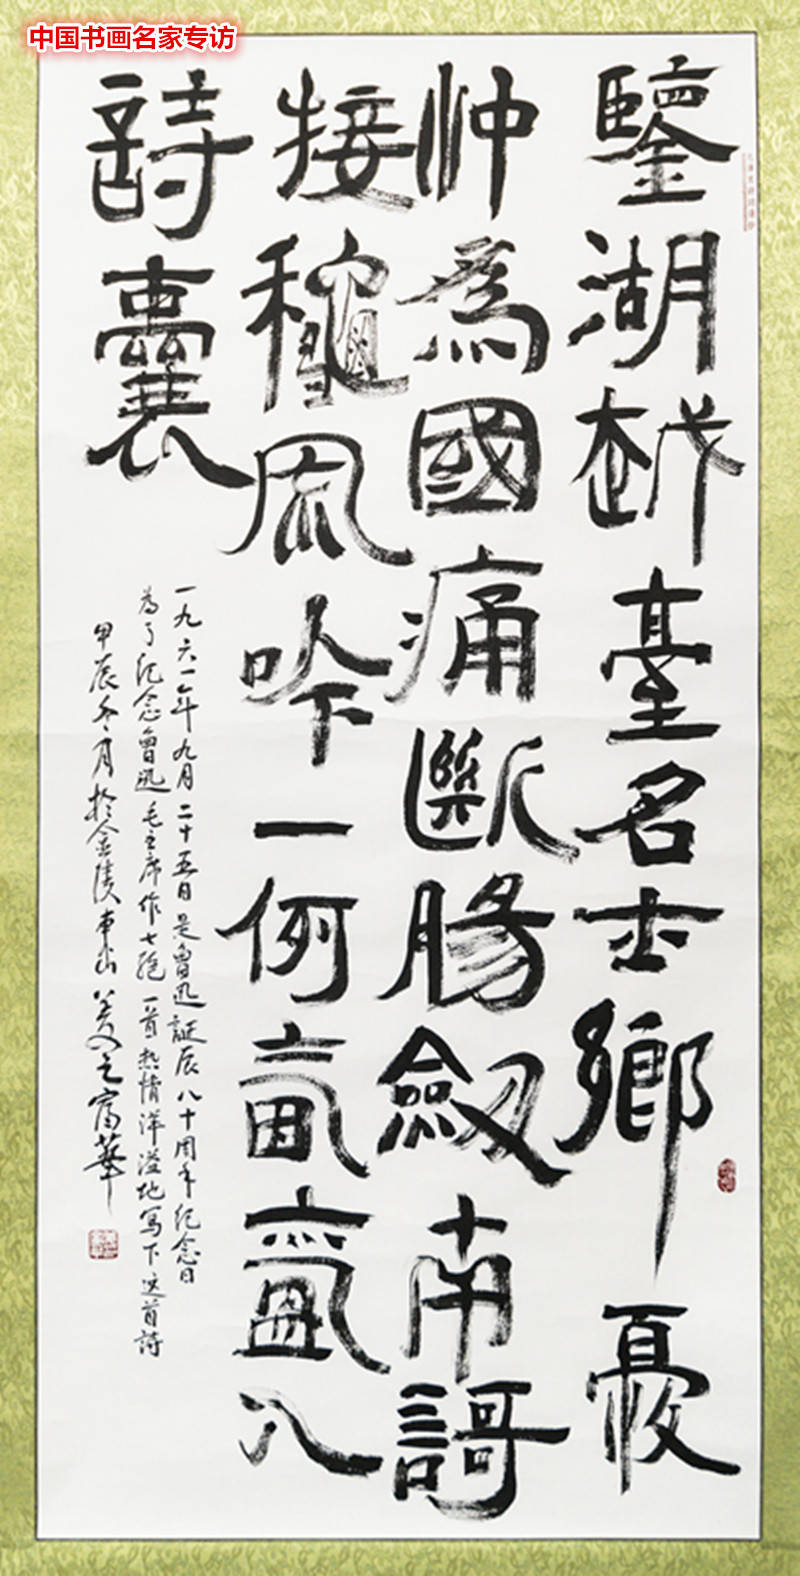 中国书画名家专访
鑒湖越臺名士鄉憂
忡爲國痛斷腸劔南謌
接穐風吟一例氤氳入
詩囊
一九六一年九月二十五日是魯迅誕辰八十周年纪念日
为了纪念魯迅毛主席作七绝一首热情洋溢地写下这首詩
甲辰冬月於金陵東山富華